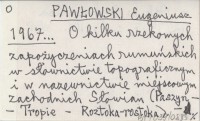 O
PAWŁOWSKI Eugeniusz
1967... O kilku rzekomych
zapożyczeniach rumuńskich
w słownictwie topograficznym
i w nazewnictwie miejscowym
zachodnich Słowian (Paszyn -
- Tropie - Roztoka-rostoka